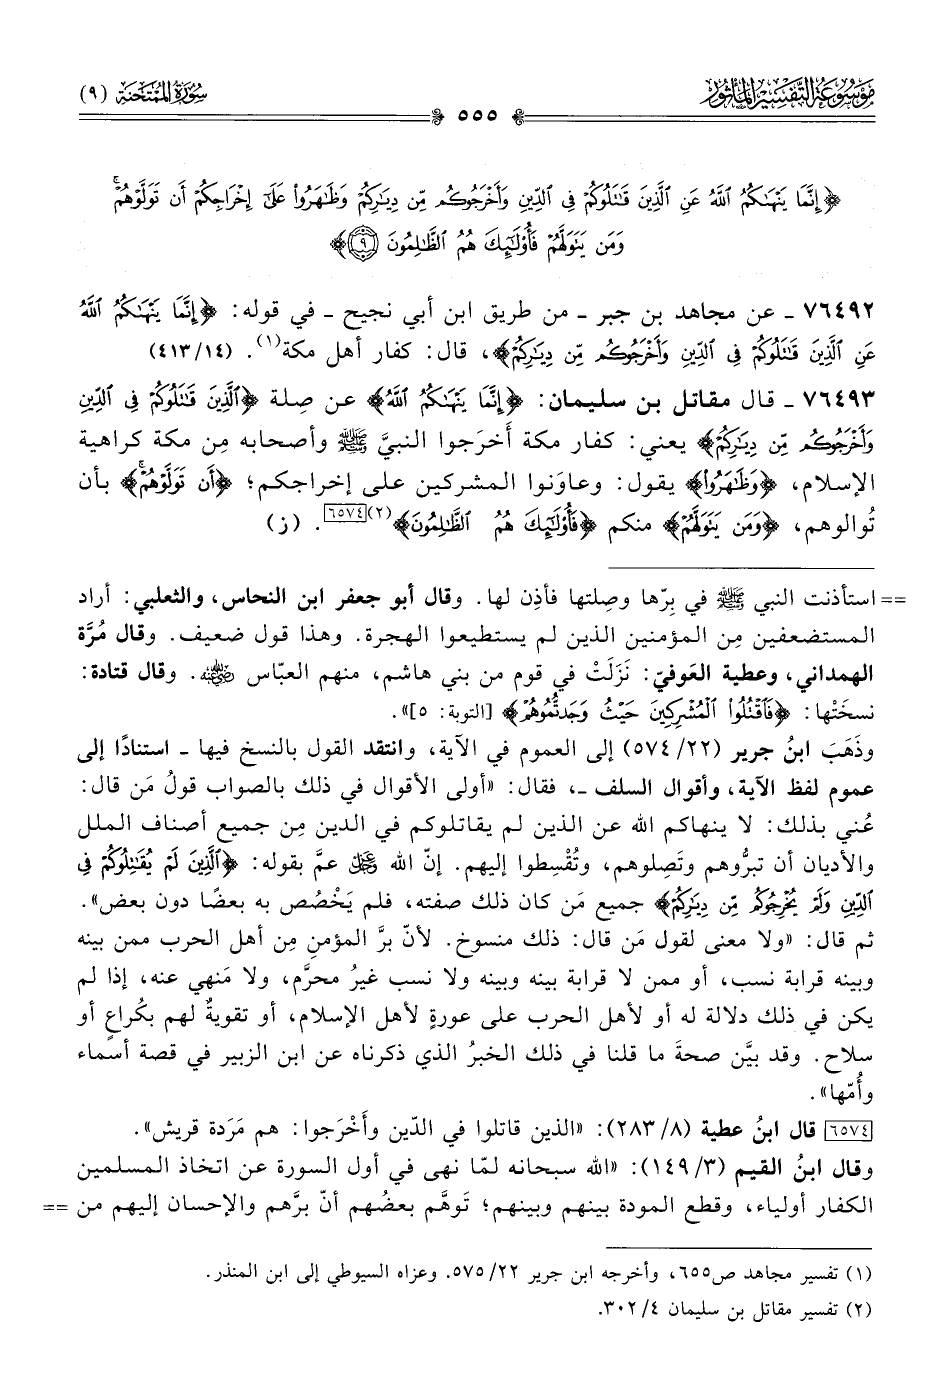 مَوْسُوعَةُ التَّفْسِيرِ المَأْثُور
٥٥٥
سُورَةُ المُمْتَحنَة (٩)
﴿إِنَّمَا يَنْهَىٰكُمُ ٱللَّهُ عَنِ ٱلَّذِينَ قَٰتَلُوكُمْ فِى ٱلدِّينِ وَأَخْرَجُوكُم مِّن دِيَٰرِكُمْ وَظَٰهَرُوا۟ عَلَىٰٓ إِخْرَاجِكُمْ أَن تَوَلَّوْهُمْ ۚ
وَمَن يَتَوَلَّهُمْ فَأُو۟لَٰٓئِكَ هُمُ ٱلظَّٰلِمُونَ ٩﴾
٧٦٤٩٢ ـ عن مجاهد بن جبر ـ من طريق ابن أبي نجيح ـ في قوله: ﴿إِنَّمَا يَنْهَىٰكُمُ ٱللَّهُ
عَنِ ٱلَّذِينَ قَٰتَلُوكُمْ فِى ٱلدِّينِ وَأَخْرَجُوكُم مِّن دِيَٰرِكُمْ﴾، قال: كفار أهل مكة(١). (٤١٣/١٤)
٧٦٤٩٣ ـ قال مقاتل بن سليمان: ﴿إِنَّمَا يَنْهَىٰكُمُ ٱللَّهُ﴾ عن صِلة ﴿ٱلَّذِينَ قَٰتَلُوكُمْ فِى ٱلدِّينِ
وَأَخْرَجُوكُم مِّن دِيَٰرِكُمْ﴾ يعني: كفار مكة أَخرَجوا النبيَّ ﷺ وأصحابه مِن مكة كراهية
الإسلام، ﴿وَظَٰهَرُوا۟﴾ يقول: وعاوَنوا المشركين على إخراجكم؛ ﴿أَن تَوَلَّوْهُمْ ۚ﴾ بأن
تُوالوهم، ﴿وَمَن يَتَوَلَّهُمْ﴾ منكم ﴿فَأُو۟لَٰٓئِكَ هُمُ ٱلظَّٰلِمُونَ﴾(٢)[٦٥٧٤]. (ز)
== استأذنت النبي ﷺ في بِرّها وصِلتها فأذِن لها. وقال أبو جعفر ابن النحاس، والثعلبي: أراد
المستضعفين مِن المؤمنين الذين لم يستطيعوا الهجرة. وهذا قول ضعيف. وقال مُرَّة
الهمداني، وعطية العَوفيّ: نَزَلَتْ في قوم من بني هاشم، منهم العبّاس رضي الله عنه. وقال قتادة:
نسخَتْها: ﴿فَٱقْتُلُوا۟ ٱلْمُشْرِكِينَ حَيْثُ وَجَدتُّمُوهُمْ﴾ [التوبة: ٥]».
وذَهَبَ ابنُ جرير (٥٧٤/٢٢) إلى العموم في الآية، وانتقد القول بالنسخ فيها ـ استنادًا إلى
عموم لفظ الآية، وأقوال السلف ـ، فقال: «أولى الأقوال في ذلك بالصواب قولُ مَن قال:
عُني بذلك: لا ينهاكم الله عن الذين لم يقاتلوكم في الدين مِن جميع أصناف الملل
والأديان أن تبرُّوهم وتَصِلوهم، وتُقْسِطوا إليهم. إنّ الله ﷻ عمَّ بقوله: ﴿ٱلَّذِينَ لَمْ يُقَٰتِلُوكُمْ فِى
ٱلدِّينِ وَلَمْ يُخْرِجُوكُم مِّن دِيَٰرِكُمْ﴾ جميع مَن كان ذلك صفته، فلم يَخْصُص به بعضًا دون بعض».
ثم قال: «ولا معنى لقول مَن قال: ذلك منسوخ. لأنّ برَّ المؤمنِ مِن أهل الحرب ممن بينه
وبينه قرابة نسب، أو ممن لا قرابة بينه وبينه ولا نسب غيرُ محرَّم، ولا مَنهي عنه، إذا لم
يكن في ذلك دلالة له أو لأهل الحرب على عورةٍ لأهل الإسلام، أو تقويةٌ لهم بكُراعٍ أو
سلاح. وقد بيَّن صحةَ ما قلنا في ذلك الخبرُ الذي ذكرناه عن ابن الزبير في قصة أسماء
وأُمّها».
[٦٥٧٤] قال ابنُ عطية (٢٨٣/٨): «الذين قاتلوا في الدّين وأَخْرَجوا: هم مَرَدة قريش».
وقال ابنُ القيم (١٤٩/٣): «الله سبحانه لمّا نهى في أول السورة عن اتخاذ المسلمين
الكفار أولياء، وقطع المودة بينهم وبينهم؛ تَوهَّم بعضُهم أنّ برَّهم والإحسان إليهم من ==
(١) تفسير مجاهد ص٦٥٥، وأخرجه ابن جرير ٥٧٥/٢٢. وعزاه السيوطي إلى ابن المنذر.
(٢) تفسير مقاتل بن سليمان ٣٠٢/٤.